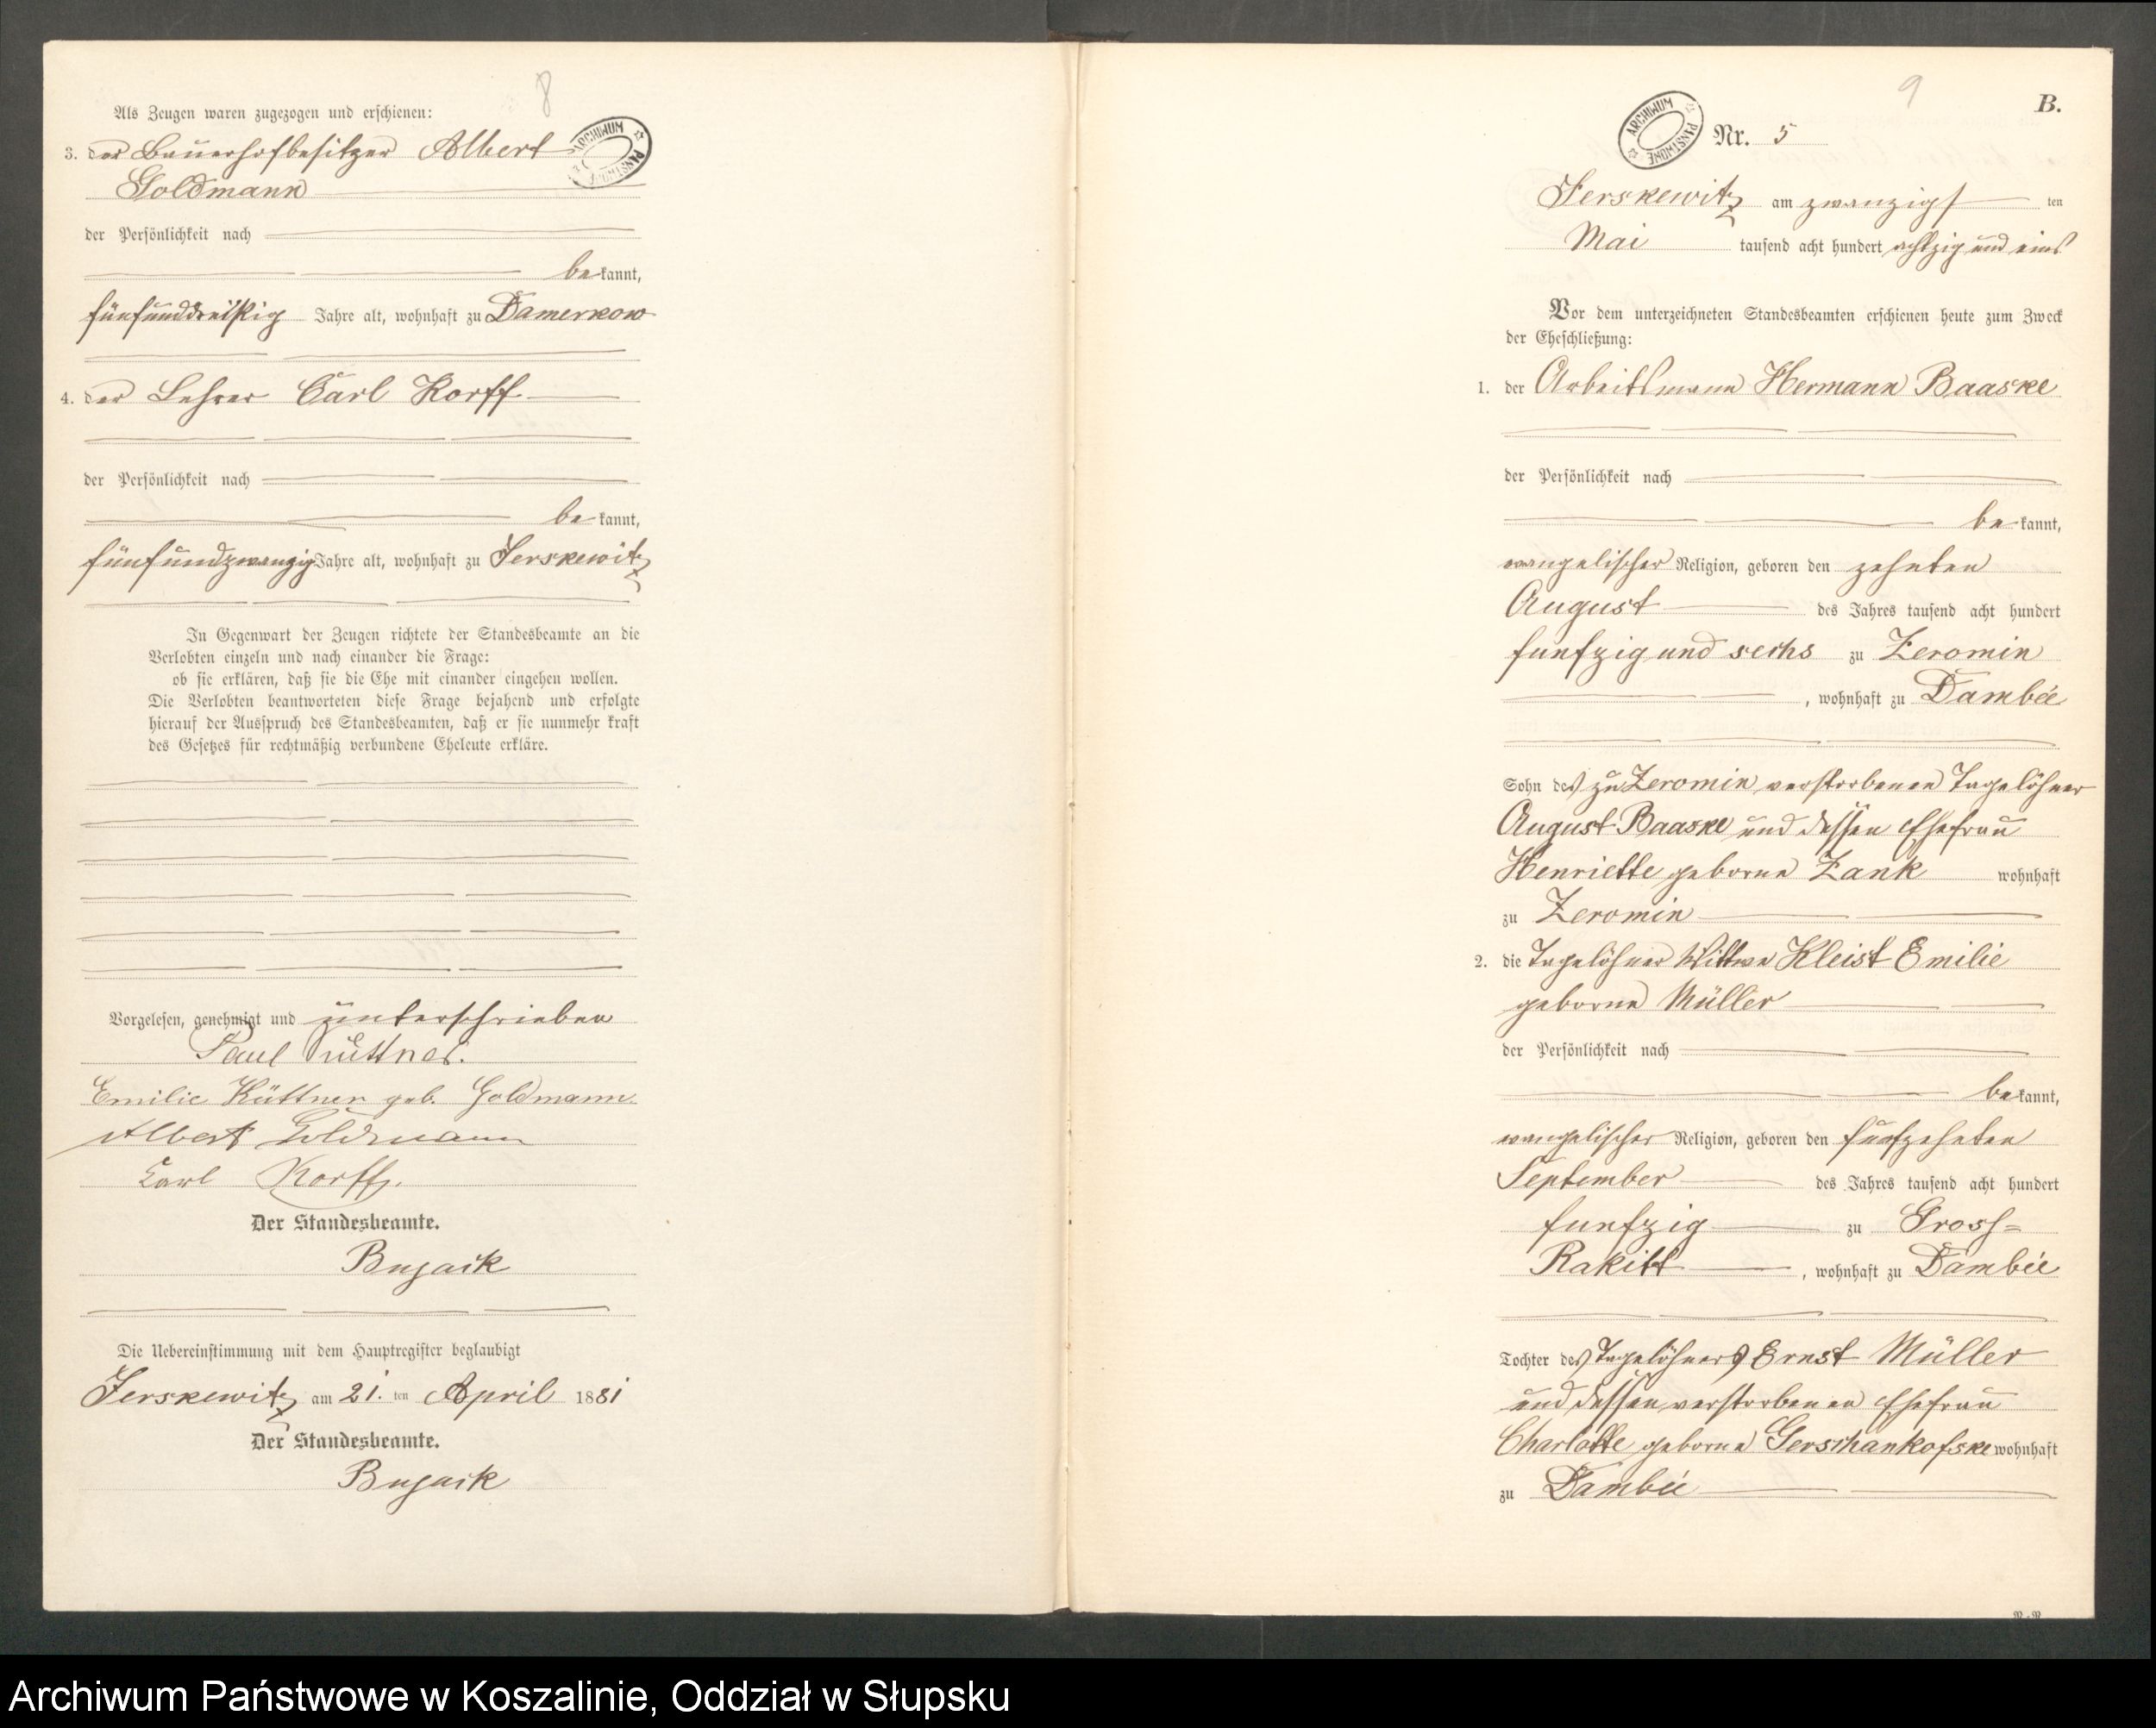 8
Als Zeugen waren zugezogen und erschienen:
3. der Bauerhofbesitzer Albert
Goldmann
der Persönlichkeit nach
be kannt,
fünfunddreißig Jahre alt, wohnhaft zu Damerkow
4. der Lehrer Carl Korff
der Persönlichkeit nach
be kannt,
fünfundzwanzig Jahre alt, wohnhaft zu Jerskewitz
In Gegenwart der Zeugen richtete der Standesbeamte an die
Verlobten einzeln und nach einander die Frage:
ob sie erklären, daß sie die Ehe mit einander eingehen wollen.
Die Verlobten beantworteten diese Frage bejahend und erfolgte
hierauf der Ausspruch des Standesbeamten, daß er sie nunmehr kraft
des Gesetzes für rechtmäßig verbundene Eheleute erkläre.
Vorgelesen, genehmigt und unterschrieben
Paul Küttner.
Emilie Küttner geb. Goldmann.
Albert Goldmann
Carl Korff.
Der Standesbeamte.
Die Uebereinstimmung mit dem Hauptregister beglaubigt
Jerskewitz am 21. ten April 1881
Der Standesbeamte.
ARCHIWUM PAŃSTWOWE
9
B.
Nr. 5
Jerskewitz am zwanzigs ten
Mai tausend acht hundert achtzig und eins
Vor dem unterzeichneten Standesbeamten erschienen heute zum Zweck
der Eheschließung:
1. der Arbeitsmann Hermann Baaske
der Persönlichkeit nach
be kannt,
evangelischer Religion, geboren den zehnten
August des Jahres tausend acht hundert
funfzig und sechs zu Zeromin
, wohnhaft zu Dambée
Sohn des zu Zeromin verstorbenen Tagelöhner
August Baaske und dessen Ehefrau
Henriette geborne Zank wohnhaft
zu Zeromin
2. die Tagelöhner Wittwe Kleist Emilie
geborne Müller
der Persönlichkeit nach
be kannt,
evangelischer Religion, geboren den funfzehnten
September des Jahres tausend acht hundert
funfzig zu Gross=
Rakitt , wohnhaft zu Dambée
Tochter des Tagelöhners Ernst Müller
und dessen verstorbenen Ehefrau
Charlotte geborne Gerschankofske wohnhaft
zu Dambée
Archiwum Państwowe w Koszalinie, Oddział w Słupsku